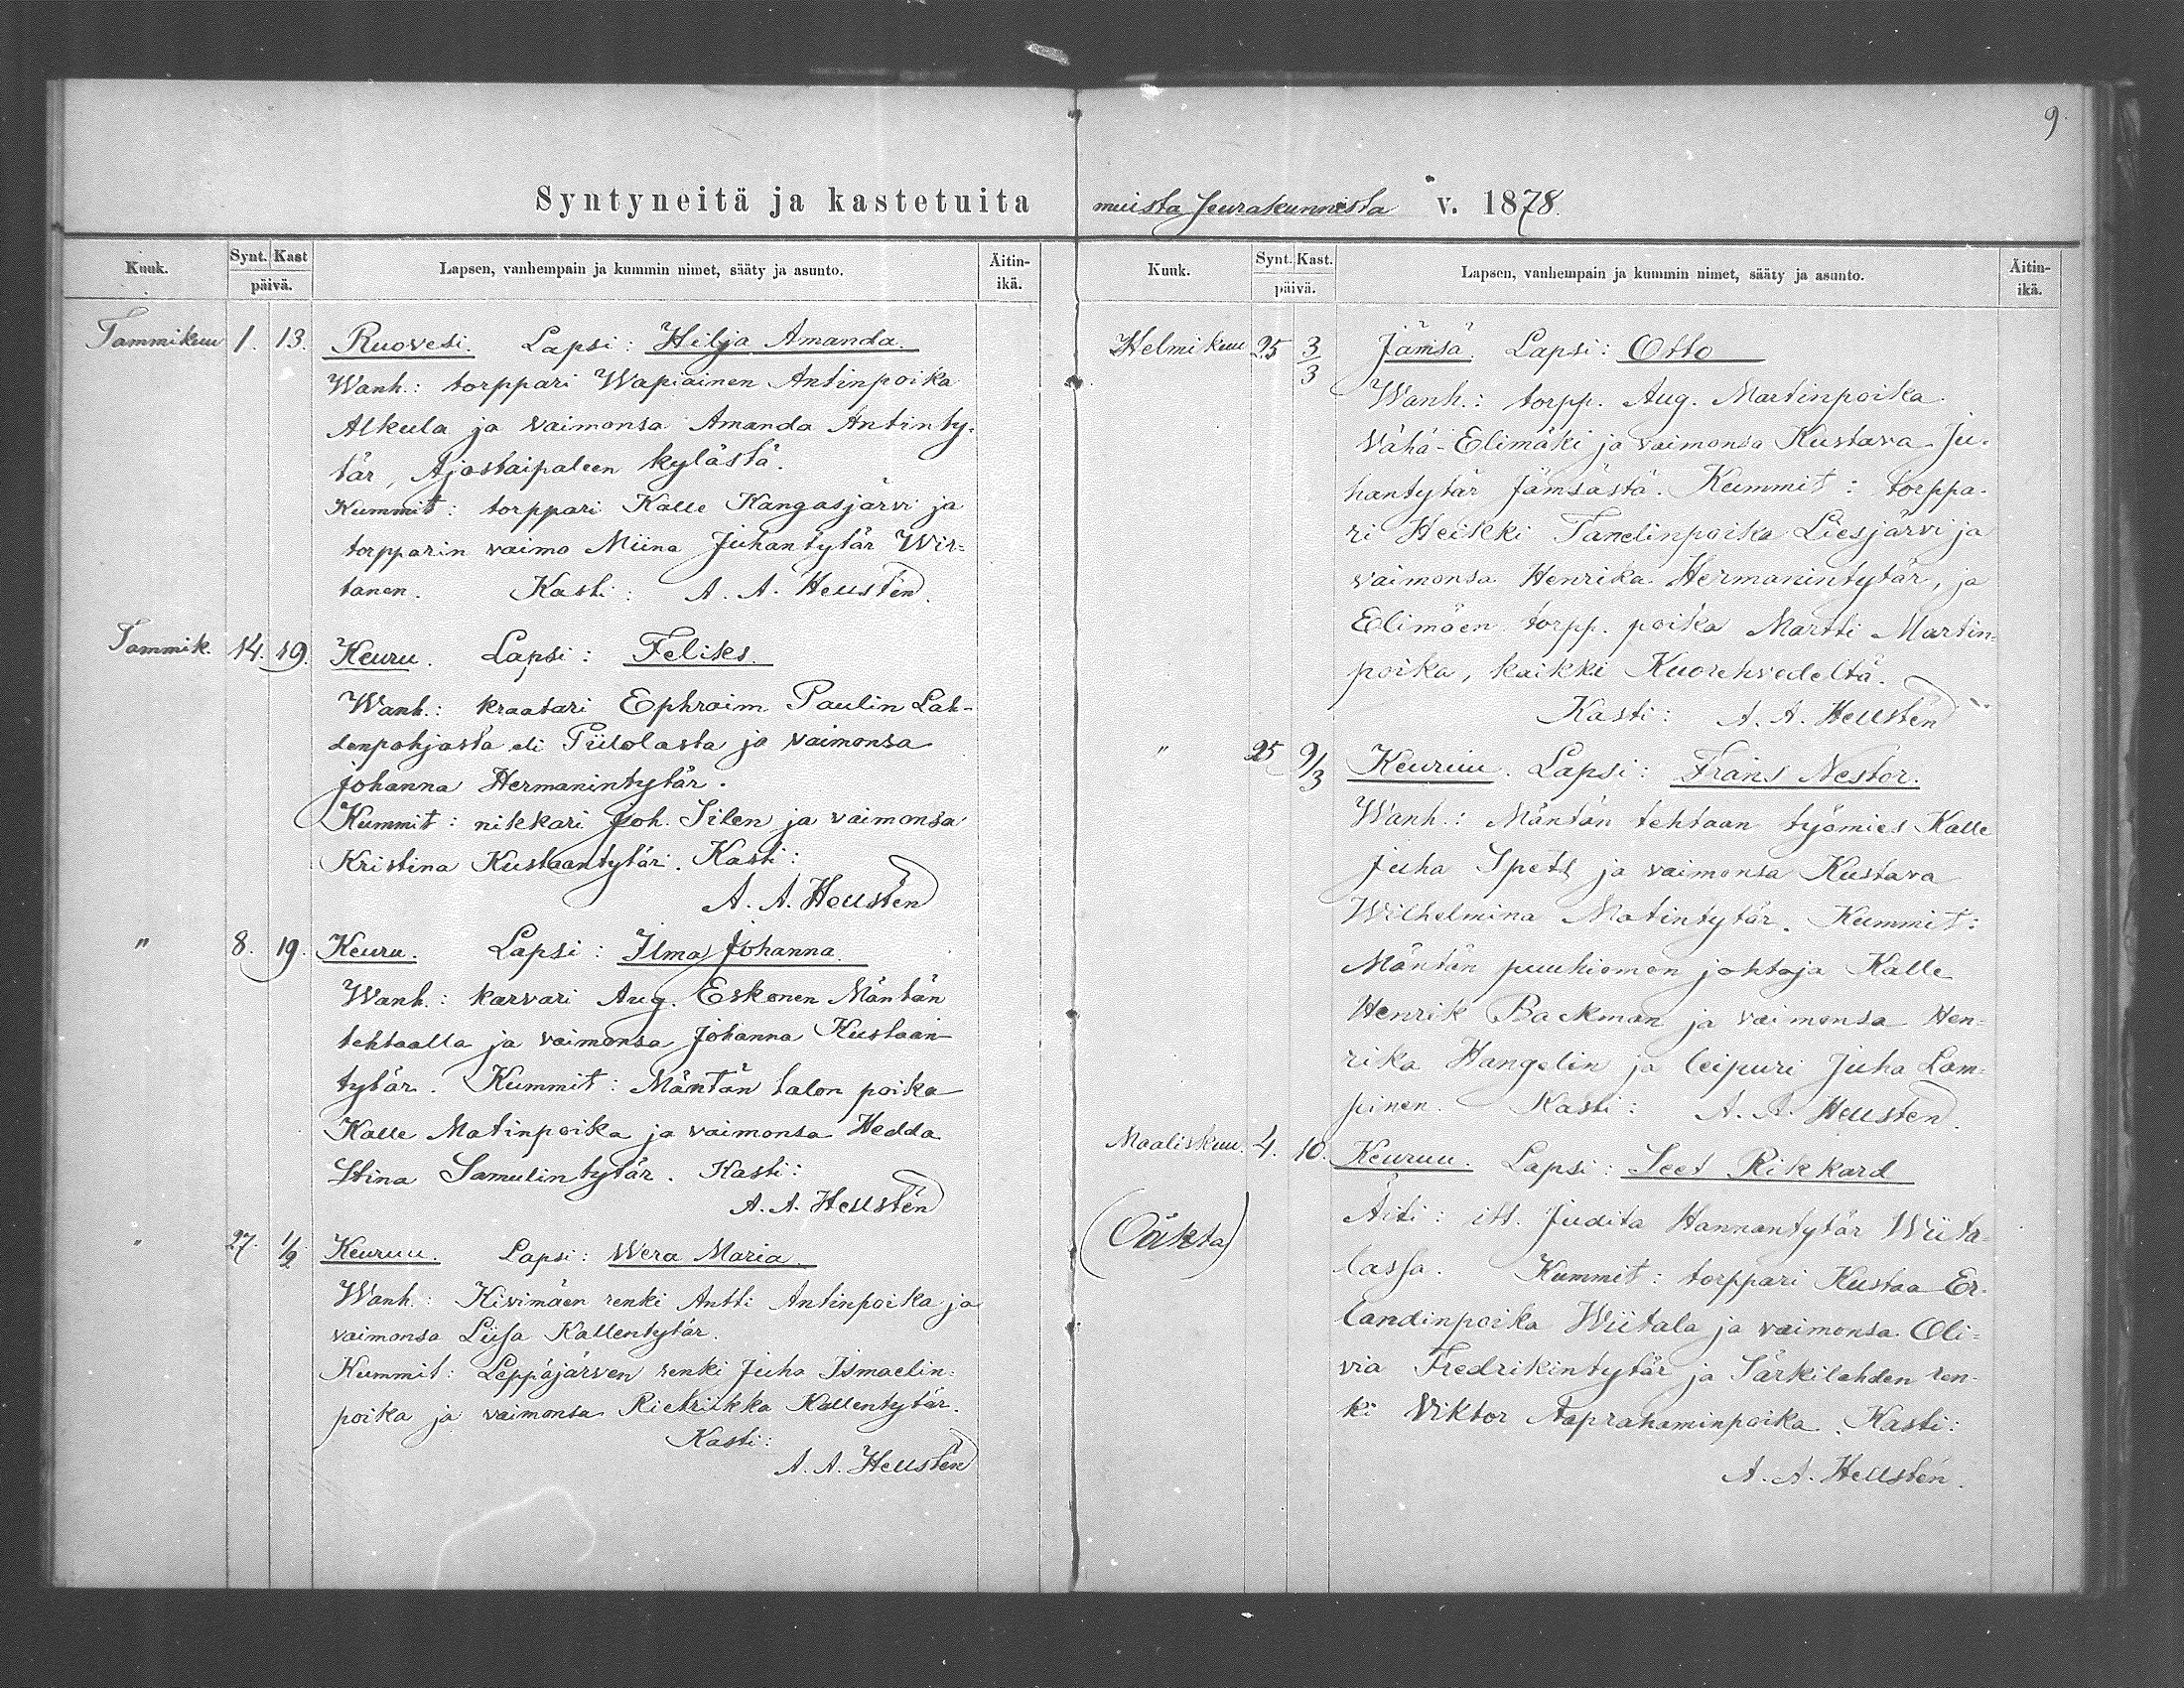 9.
Syntyneitä ja kastetuita muista seurakunnista v. 1878.
Kuuk. Synt. Kast päivä. Lapsen, vanhempain ja kummin nimet, sääty ja asunto. Äitin-ikä.
Tammikuu 1. 13. Ruovesi. Lapsi: Hilja Amanda.
Wanh.: torppari Wapiainen Antinpoika
Alkula ja vaimonsa Amanda Antinty-
tär, Ajostaipaleen kylästä.
Kummit: torppari Kalle Kangasjärvi ja
torpparin vaimo Miina Juhantytär Wir=
tanen. Kasti: A. A. Hellstén.
Tammik. 14. 19. Keuru. Lapsi: Feliks.
Wanh.: kraatari Ephraim Paulin Lah-
denpohjasta eli Piilolasta ja vaimonsa
Johanna Hermanintytär.
Kummit: nikkari Joh. Silen ja vaimonsa
Kristina Kustaantytär. Kasti:
A. A. Hellstén
" 8. 19. Keuru. Lapsi: Ilma Johanna.
Wanh.: karvari Aug. Eskonen Mäntän
tehtaalla ja vaimonsa Johanna Kustaan-
tytär. Kummit: Mäntän talon poika
Kalle Matinpoika ja vaimonsa Hedda
Stina Samulintytär. Kasti:
A. A. Hellstén
" 27. 1/2 Keuruu. Lapsi: Wera Maria.
Wanh.: Kivimäen renki Antti Antinpoika ja
vaimonsa Liisa Kallentytär.
Kummit: Leppäjärven renki Juha Ismaelin=
poika ja vaimonsa Rietrikka Kallentytär.
Kasti:
A. A. Hellstén
Kuuk. Synt. Kast. päivä. Lapsen, vanhempain ja kummin nimet, sääty ja asunto. Äitin-ikä.
Helmikuu 25 3/3 Jämsä. Lapsi: Otto
Wanh.: torpp. Aug. Martinpoika
Vähä-Elimäki ja vaimonsa Kustava Ju-
hantytär Jämsästä. Kummit: torppa-
ri Heikki Tanelinpoika Liesjärvi ja
vaimonsa Henrika Hermanintytär, ja
Elimäen torpp. poika Martti Martin-
poika, kaikki Kuorehvedeltä.
Kasti: A. A. Hellstén
" 25 9/3 Keuruu. Lapsi: Frans Nestor.
Wanh.: Mäntän tehtaan työmies Kalle
Juha Spets ja vaimonsa Kustava
Wilhelmina Matintytär. Kummit:
Mäntän puuhiomon johtaja Kalle
Henrik Backman ja vaimonsa Hen=
rika Hangelin ja leipuri Juha Lam=
pinen. Kasti: A. A. Hellstén.
Maaliskuu. 4. 10. Keuruu. Lapsi: Seet Rikkard
(Öäkta) Äiti: itl. Judita Hannantytär Wiita-
lassa. Kummit: torppari Kustaa Er-
landinpoika Wiitala ja vaimonsa Oli=
via Fredrikintytär ja Särkilahden ren-
ki Viktor Aaprahaminpoika. Kasti:
A. A. Hellstén.